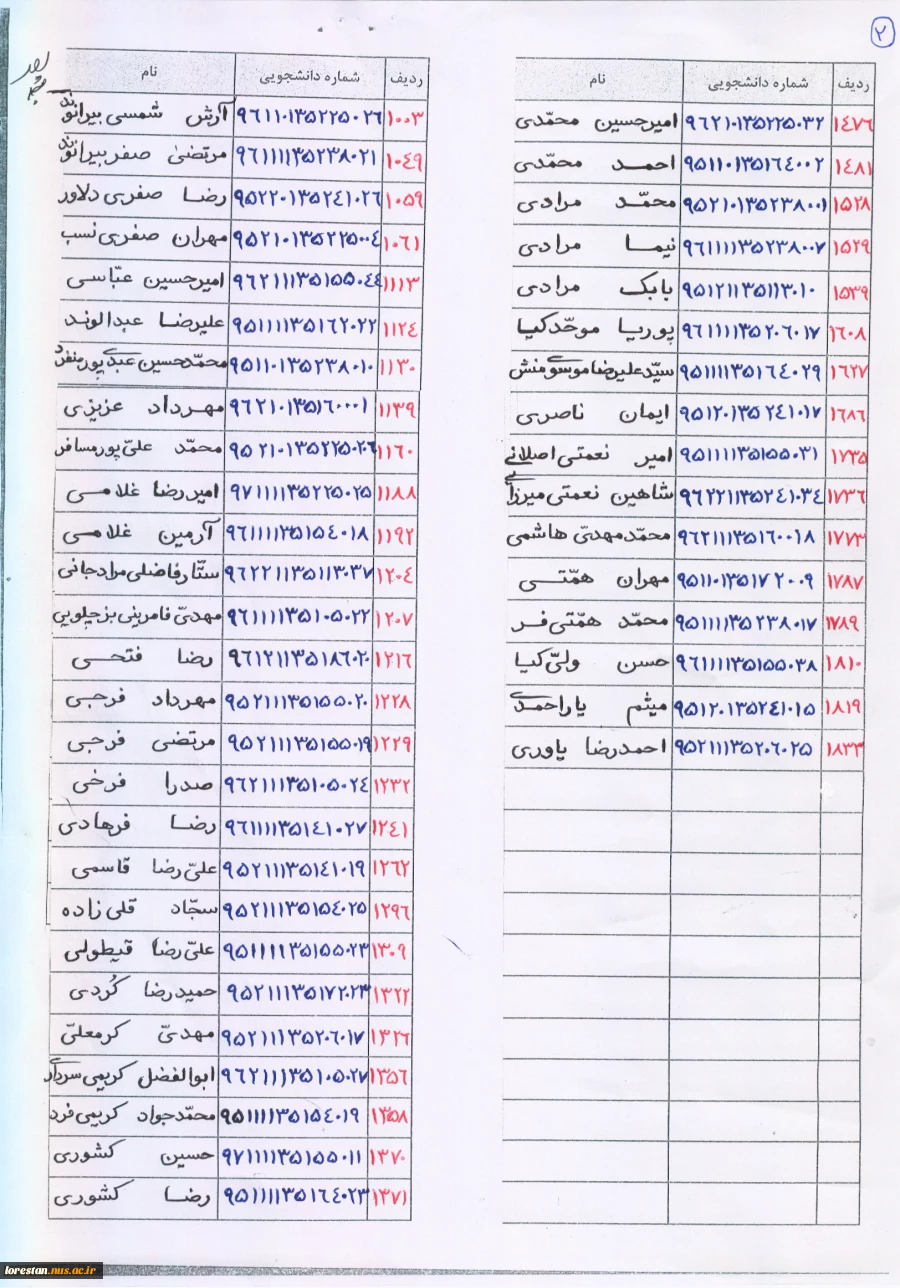 ۲
ردیف شماره دانشجویی نام
۱۴۷۶ ۹۶۲۱۰۱۳۵۲۲۵۰۳۲ امیرحسین محمّدی
۱۴۸۱ ۹۵۱۱۰۱۳۵۱۶۴۰۰۲ احمد محمّدی
۱۵۲۸ ۹۵۲۱۰۱۳۵۲۳۸۰۰۱ محمّد مرادی
۱۵۲۹ ۹۶۱۱۱۱۳۵۲۳۸۰۰۷ نیما مرادی
۱۵۳۹ ۹۵۱۲۱۱۳۵۱۱۳۰۱۰ بابک مرادی
۱۶۰۸ ۹۶۱۱۱۱۳۵۲۰۶۰۱۷ پوریا موحّدکیا
۱۶۲۷ ۹۵۱۱۱۱۳۵۱۶۴۰۲۹ سیّدعلیرضا موسوی منش
۱۶۸۶ ۹۵۱۲۰۱۳۵۲۴۱۰۱۷ ایمان ناصری
۱۷۳۵ ۹۵۱۱۱۱۳۵۱۵۵۰۳۱ امیر نعمتی اصلانی
۱۷۳۶ ۹۶۲۲۱۱۳۵۲۴۱۰۳۴ شاهین نعمتی میرزایی
۱۷۷۳ ۹۶۲۱۱۱۳۵۱۶۰۰۱۸ محمّدمهدیّ هاشمی
۱۷۸۷ ۹۵۱۱۰۱۳۵۱۷۲۰۰۹ مهران همّتی
۱۷۸۹ ۹۵۱۱۱۱۳۵۲۳۸۰۱۷ محمّد همّتی فر
۱۸۱۰ ۹۶۱۱۱۱۳۵۱۵۵۰۳۸ حسن ولیّ کیا
۱۸۱۹ ۹۵۱۲۰۱۳۵۲۴۱۰۱۵ میثم یاراحمدی
۱۸۳۳ ۹۵۲۱۱۱۳۵۲۰۶۰۲۵ احمدرضا یاوری
ردیف شماره دانشجویی نام
۱۰۰۳ ۹۶۱۱۰۱۳۵۲۲۵۰۲۶ آرش شمسی بیرانوند
۱۰۴۹ ۹۶۱۱۱۱۳۵۲۳۸۰۲۱ مرتضیٰ صفر بیرانوند
۱۰۵۹ ۹۵۲۲۰۱۳۵۲۴۱۰۲۶ رضا صفری دلاور
۱۰۶۱ ۹۵۲۱۰۱۳۵۲۲۵۰۰۴ مهران صفری نسب
۱۱۱۳ ۹۶۲۱۱۱۳۵۱۵۵۰۴۴ امیرحسین عبّاسی
۱۱۲۴ ۹۵۱۱۱۱۳۵۱۶۲۰۲۲ علیرضا عبدالوند
۱۱۳۰ ۹۵۱۱۰۱۳۵۲۳۸۰۱۰ محمّدحسین عبدی پورمنفرد
۱۱۳۹ ۹۶۲۱۰۱۳۵۱۶۰۰۰۱ مهرداد عزیزی
۱۱۶۰ ۹۵۲۱۰۱۳۵۲۲۵۰۲۶ محمّد علیّ پورمسافر
۱۱۸۸ ۹۷۱۱۱۱۳۵۲۲۵۰۲۵ امیررضا غلامی
۱۱۹۲ ۹۶۱۱۱۱۳۵۱۵۴۰۱۸ آرمین غلامی
۱۲۰۴ ۹۶۲۲۱۱۳۵۱۱۳۰۳۷ ستّارفاضلی مرادجانی
۱۲۰۷ ۹۶۱۱۱۱۳۵۱۰۵۰۲۲ مهدیّ فامرینی بزچلویی
۱۲۱۶ ۹۶۱۲۱۱۳۵۱۸۶۰۲۰ رضا فتحی
۱۲۲۸ ۹۵۲۱۱۱۳۵۱۵۵۰۲۰ مهرداد فرجی
۱۲۲۹ ۹۵۲۱۱۱۳۵۱۵۵۰۱۹ مرتضی فرجی
۱۲۳۲ ۹۶۲۱۱۱۳۵۱۰۵۰۲۴ صدرا فرخی
۱۲۴۱ ۹۶۱۱۱۱۳۵۱۴۱۰۲۷ رضا فرهادی
۱۲۶۲ ۹۵۲۱۱۱۳۵۱۴۱۰۱۹ علیّ رضا قاسمی
۱۲۹۶ ۹۵۲۱۱۱۳۵۱۵۴۰۲۵ سجّاد قلی زاده
۱۳۰۹ ۹۵۱۱۱۱۳۵۱۵۵۰۲۳ علیّ رضا قیطولی
۱۳۲۲ ۹۵۲۱۱۱۳۵۱۷۲۰۲۳ حمیدرضا کُردی
۱۳۲۶ ۹۵۲۱۱۱۳۵۲۰۶۰۱۷ مهدیّ کرمعلیّ
۱۳۵۶ ۹۶۲۱۱۱۳۵۱۰۵۰۲۷ ابوالفضل کریمی سرداری
۱۳۵۸ ۹۵۱۱۱۱۳۵۱۵۴۰۱۹ محمّدجواد کریمی فرد
۱۳۷۰ ۹۷۱۱۱۱۳۵۱۵۵۰۱۱ حسین کشوری
۱۳۷۱ ۹۵۱۱۱۱۳۵۱۶۴۰۲۳ رضا کشوری
lorestan.nus.ac.ir